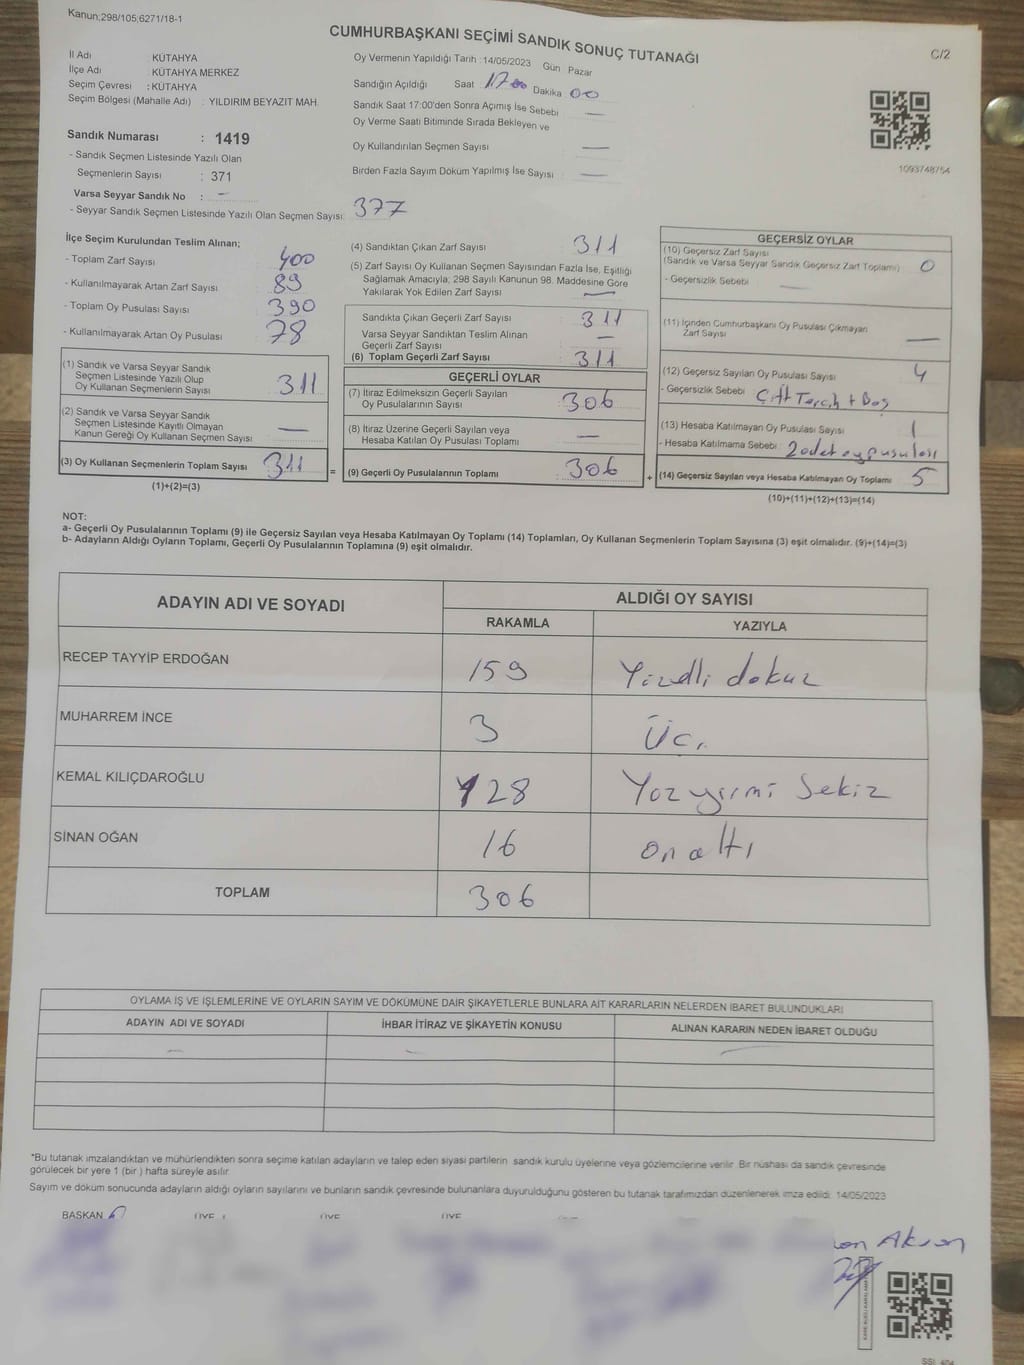 Kanun;298/105;6271/18-1
CUMHURBAŞKANI SEÇİMİ SANDIK SONUÇ TUTANAĞI
C/2
İl Adı : KÜTAHYA
İlçe Adı : KÜTAHYA MERKEZ
Seçim Çevresi : KÜTAHYA
Seçim Bölgesi (Mahalle Adı) : YILDIRIM BEYAZIT MAH.
Sandık Numarası : 1419
- Sandık Seçmen Listesinde Yazılı Olan
Seçmenlerin Sayısı : 371
Varsa Seyyar Sandık No : —
- Seyyar Sandık Seçmen Listesinde Yazılı Olan Seçmen Sayısı: 377
Oy Vermenin Yapıldığı Tarih :14/05/2023 Gün Pazar
Sandığın Açıldığı Saat 17.00 Dakika 00
Sandık Saat 17:00'den Sonra Açımış İse Sebebi —
Oy Verme Saati Bitiminde Sırada Bekleyen ve
Oy Kullandırılan Seçmen Sayısı —
Birden Fazla Sayım Döküm Yapılmış İse Sayısı : —
1093748754
İlçe Seçim Kurulundan Teslim Alınan;
- Toplam Zarf Sayısı : 400
- Kullanılmayarak Artan Zarf Sayısı : 89
- Toplam Oy Pusulası Sayısı : 390
- Kullanılmayarak Artan Oy Pusulası : 78
(1) Sandık ve Varsa Seyyar Sandık
Seçmen Listesinde Yazılı Olup
Oy Kullanan Seçmenlerin Sayısı 311
(2) Sandık ve Varsa Seyyar Sandık
Seçmen Listesinde Kayıtlı Olmayan
Kanun Gereği Oy Kullanan Seçmen Sayısı —
(3) Oy Kullanan Seçmenlerin Toplam Sayısı 311
(1)+(2)=(3)
(4) Sandıktan Çıkan Zarf Sayısı 311
(5) Zarf Sayısı Oy Kullanan Seçmen Sayısından Fazla İse, Eşitliği
Sağlamak Amacıyla; 298 Sayılı Kanunun 98. Maddesine Göre
Yakılarak Yok Edilen Zarf Sayısı —
Sandıkta Çıkan Geçerli Zarf Sayısı : 311
Varsa Seyyar Sandıktan Teslim Alınan
Geçerli Zarf Sayısı —
(6) Toplam Geçerli Zarf Sayısı : 311
GEÇERLİ OYLAR
(7) İtiraz Edilmeksizin Geçerli Sayılan
Oy Pusulalarının Sayısı : 306
(8) İtiraz Üzerine Geçerli Sayılan veya
Hesaba Katılan Oy Pusulası Toplamı —
= (9) Geçerli Oy Pusulalarının Toplamı : 306
GEÇERSİZ OYLAR
(10) Geçersiz Zarf Sayısı
(Sandık ve Varsa Seyyar Sandık Geçersiz Zarf Toplamı) 0
- Geçersizlik Sebebi : —
(11) İçinden Cumhurbaşkanı Oy Pusulası Çıkmayan
Zarf Sayısı —
(12) Geçersiz Sayılan Oy Pusulası Sayısı 4
- Geçersizlik Sebebi : Çift Tercih + Boş
(13) Hesaba Katılmayan Oy Pusulası Sayısı 1
- Hesaba Katılmama Sebebi : 2 adet oy pusulası
+ (14) Geçersiz Sayılan veya Hesaba Katılmayan Oy Toplamı 5
(10)+(11)+(12)+(13)=(14)
NOT:
a- Geçerli Oy Pusulalarının Toplamı (9) ile Geçersiz Sayılan veya Hesaba Katılmayan Oy Toplamı (14) Toplamları, Oy Kullanan Seçmenlerin Toplam Sayısına (3) eşit olmalıdır. (9)+(14)=(3)
b- Adayların Aldığı Oyların Toplamı, Geçerli Oy Pusulalarının Toplamına (9) eşit olmalıdır.
ADAYIN ADI VE SOYADI
ALDIĞI OY SAYISI
RAKAMLA YAZIYLA
RECEP TAYYİP ERDOĞAN 159 Yüzelli dokuz
MUHARREM İNCE 3 Üç
KEMAL KILIÇDAROĞLU 128 Yüz yirmi Sekiz
SİNAN OĞAN 16 on altı
TOPLAM 306
OYLAMA İŞ VE İŞLEMLERİNE VE OYLARIN SAYIM VE DÖKÜMÜNE DAİR ŞİKAYETLERLE BUNLARA AİT KARARLARIN NELERDEN İBARET BULUNDUKLARI
ADAYIN ADI VE SOYADI İHBAR İTİRAZ VE ŞİKAYETİN KONUSU ALINAN KARARIN NEDEN İBARET OLDUĞU
— — —
*Bu tutanak imzalandıktan ve mühürlendikten sonra seçime katılan adayların ve talep eden siyasi partilerin sandık kurulu üyelerine veya gözlemcilerine verilir. Bir nüshası da sandık çevresinde
görülecek bir yere 1 (bir ) hafta süreyle asılır.
Sayım ve döküm sonucunda adayların aldığı oyların sayılarını ve bunların sandık çevresinde bulunanlara duyurulduğunu gösteren bu tutanak tarafımızdan düzenlenerek imza edildi. 14/05/2023
BAŞKAN ÜYE ÜYE ÜYE